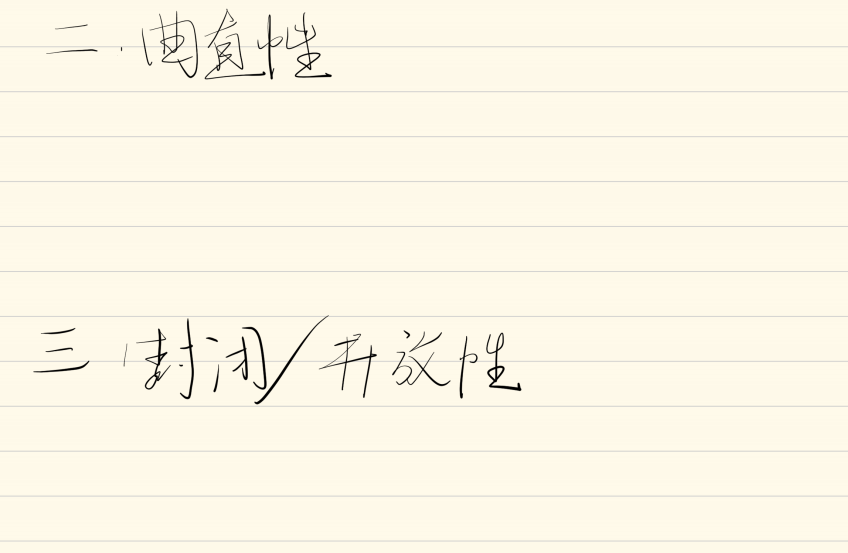 二、曲直性
三、封闭/开放性